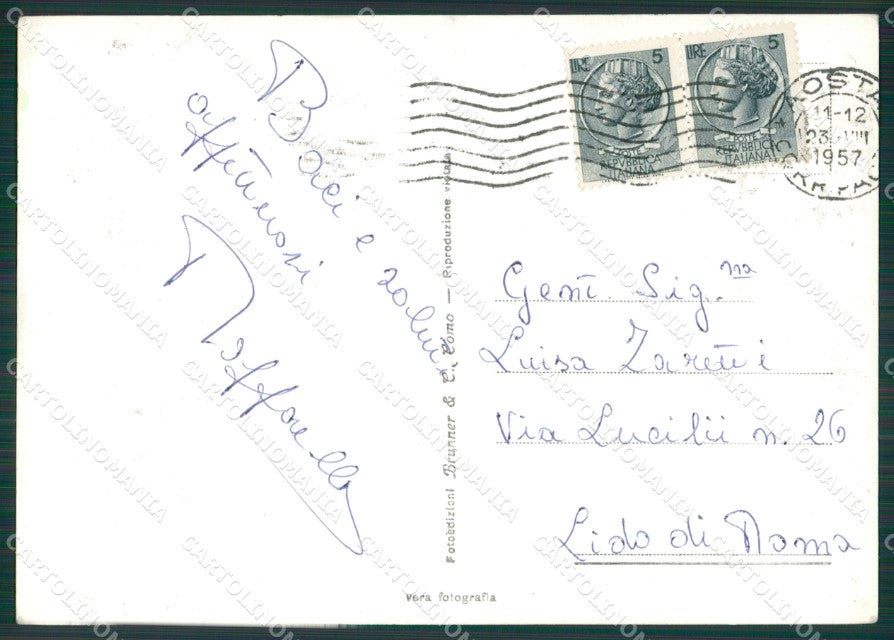 Baci e saluti
affettuosi
Raffaella
LIRE 5
REPVBBLICA
ITALIANA
LIRE 5
POSTE
REPVBBLICA
ITALIANA
11-12
23 VIII
1957
Gent. Sig.na
Luisa Zaretti
Via Lucilii n. 26
Lido di Roma
Fotoedizioni Brunner & C., Como — Riproduzione vietata
Vera fotografia
CARTOLINOMANIA